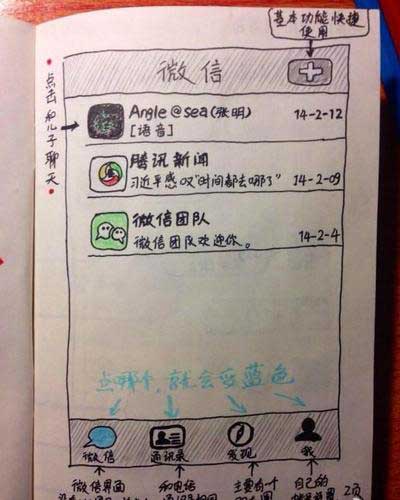 基本功能快捷
使用
微信
点击和儿子聊天
Angle@sea(张明) 14-2-12
[语音]
腾讯新闻
习近平感叹"时间都去哪了" 14-2-09
微信团队
微信团队欢迎你。 14-2-4
点哪个,就会变蓝色
微信 通讯录 发现 我
微信界面 和电信 主要有个 自己的
2页